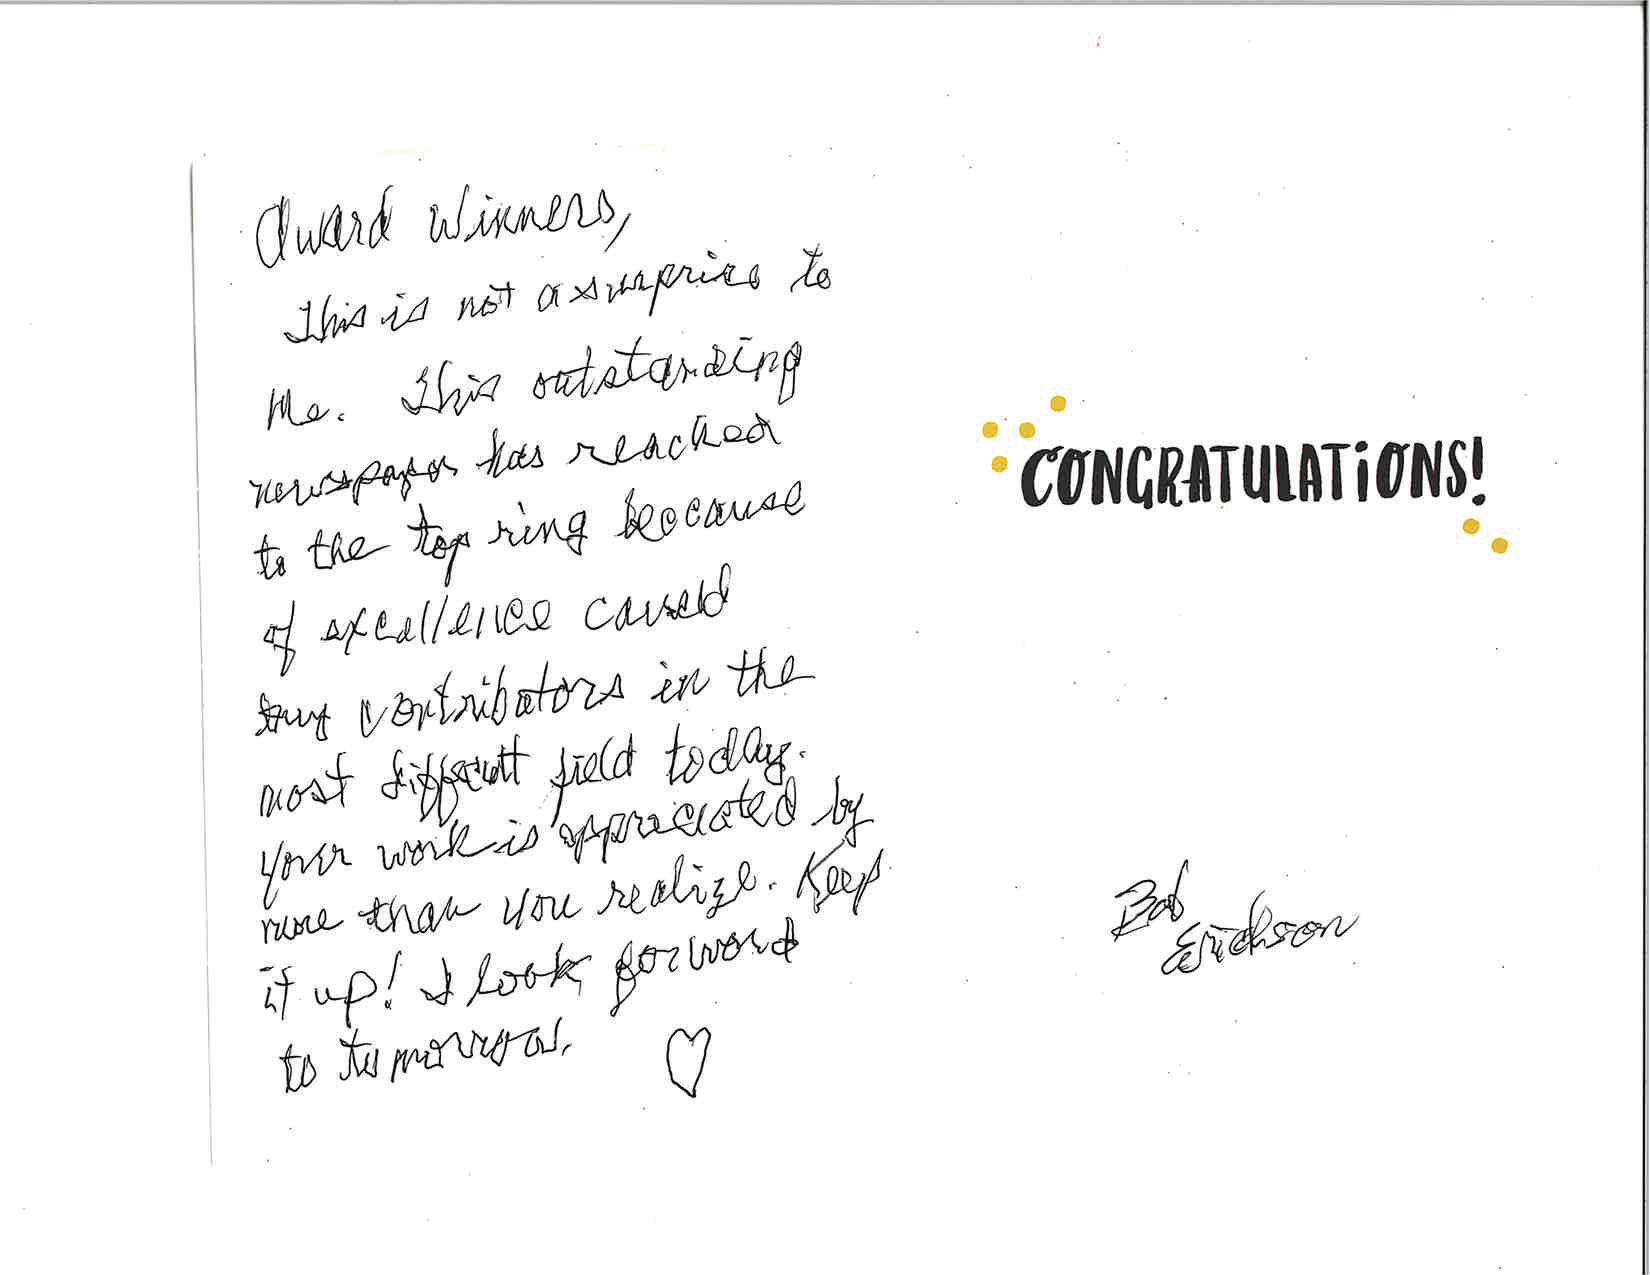 Award Winners,
This is not a surprise to
me. This outstanding
newspaper has reached
to the top ring because
of excellence caused
by contributors in the
most difficult field today.
Your work is appriciated by
more than you realize. Keep
it up! I look forward
to tomorrow.
CONGRATULATIONS!
Bob
Erickson